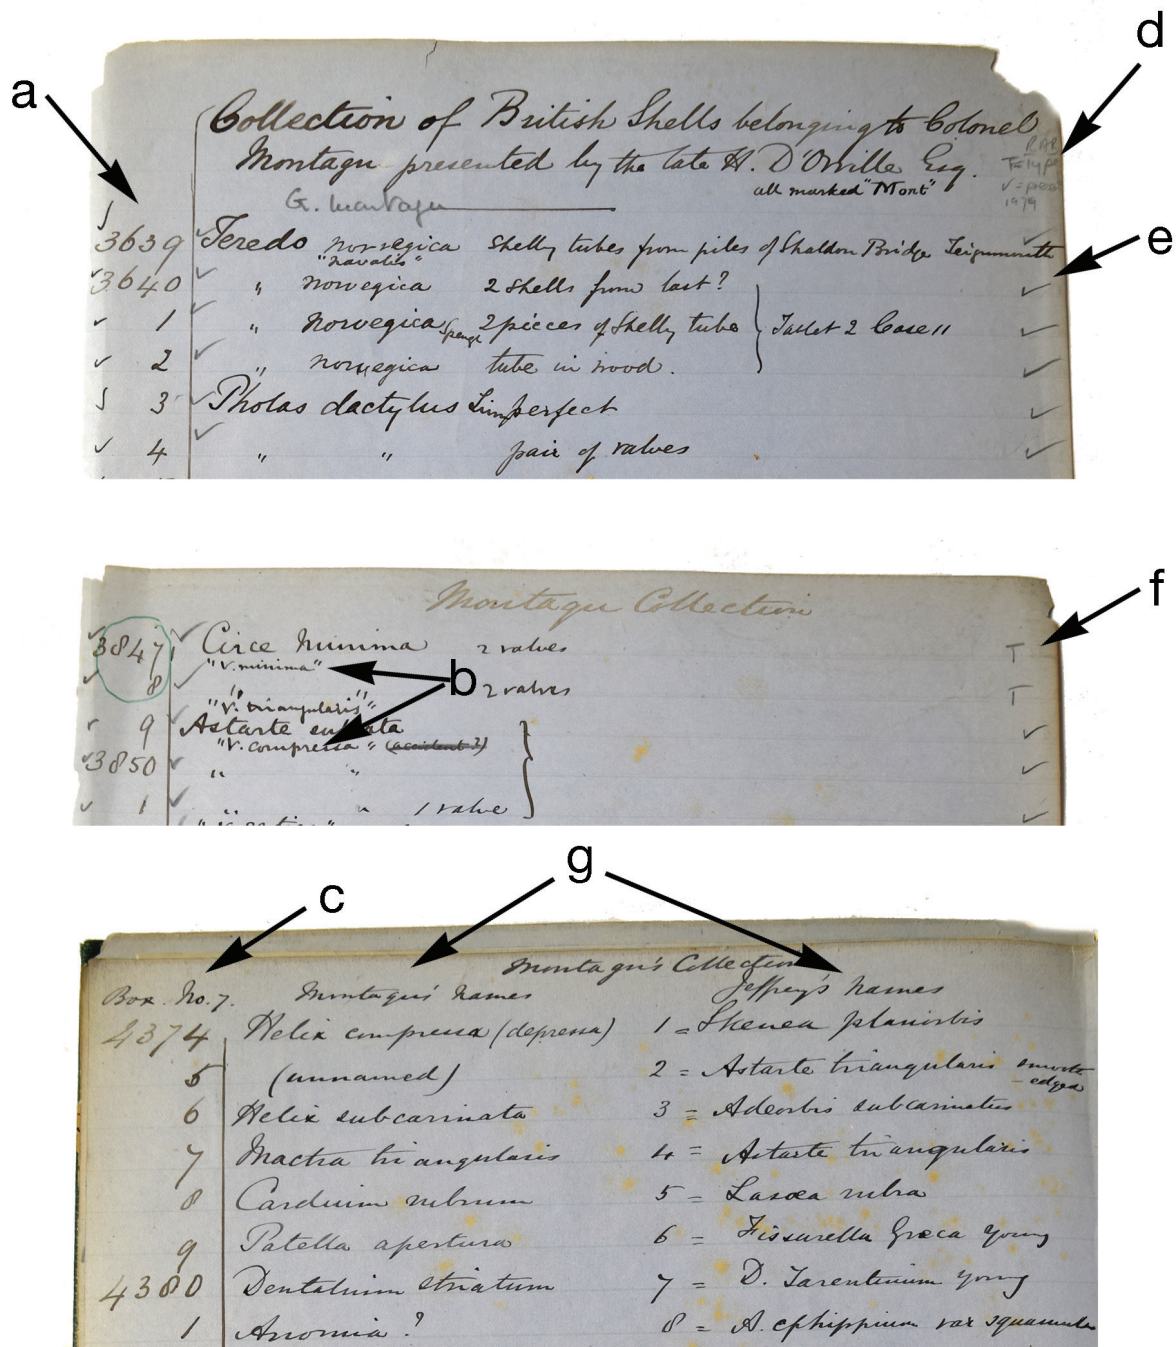 a
d
Collection of British Shells belonging to Colonel
Montagu presented by the late H. D'Orville Esq.
all marked "Mont"
T = Type
1979
G. Montagu
e
3639 Teredo norvegica Shelly tubes from piles of Shaldon Bridge Teignmouth
"navalis"
3640 " norvegica 2 shells from last?
1 " norvegica Speng 2 pieces of shelly tube } Tablet 2 Case 11
2 " norvegica tube in wood.
3 Pholas dactylus Lin imperfect
4 " " pair of valves
f
Montagu Collection
3847 Circe minima 2 valves T
"V. minima"
b
8 2 valves T
"V. triangularis"
9 Astarte sulcata
"V. compressa" (accident?)
3850 " "
1 " " 1 valve
g
c
Montagu's Collection
Box No. 7. Montagus' names Jeffrey's names
4374 Helix compressa (depressa) 1 = Skenea planorbis
5 (unnamed) 2 = Astarte triangularis smooth
edged
6 Helix subcarinata 3 = Adeorbis subcarinatus
7 Mactra triangularis 4 = Astarte triangularis
8 Cardium rubrum 5 = Lasæa rubra
9 Patella apertura 6 = Fissurella Græca young
4380 Dentalium striatum 7 = D. Tarentinum young
1 Anomia? 8 = A. ephippium var squamula